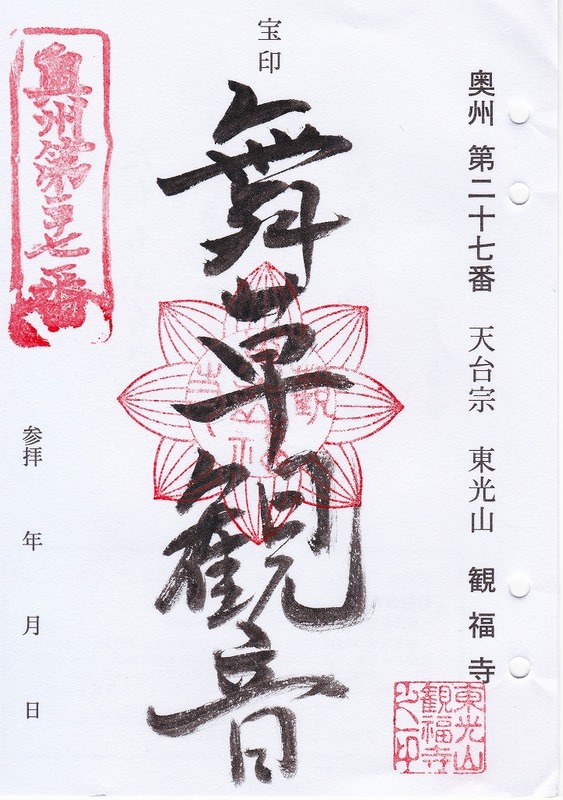 奥州 第二十七番 天台宗 東光山 観福寺
宝印
舞草観音
奥州第二七番
参拝 年 月 日
東光山
観福寺
之印